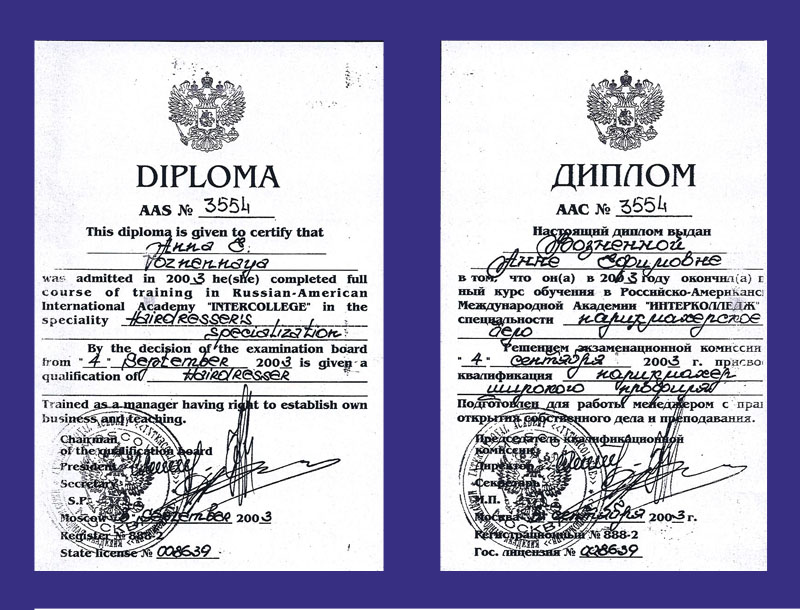 DIPLOMA
AAS № 3554
This diploma is given to certify that
Anna E.
Poznennaya
was admitted in 2003 he(she) completed full
course of training in Russian-American
International Academy "INTEKCOLLEGE" in the
speciality Hairdresser's
specialization
By the decision of the examination board
from "4" September 2003 is given a
qualification of Hairdresser
Trained as a manager having right to establish own
business and teaching.
Chairman
of the qualification board
President
Secretary
S.P.
Moscow September 2003
Register № 888-2
State license № 008639
ДИПЛОМ
ААС № 3554
Настоящий диплом выдан
Позненной
Анне Ефимовне
в том, что он(а) в 2003 году окончил(а)
ный курс обучения в Российско-Американс
Международной Академии "ИНТЕРКОЛЛЕДЖ"
специальности парикмахерское
дело
Решением экзаменационной комиссии
"4" сентября 2003 г. присво
квалификация парикмахер
широкого профиля
Подготовлен для работы менеджером с пра
открытия собственного дела и преподавания.
Председатель квалификационной
комиссии
Директор
Секретарь
М.П.
Москва сентября 2003 г.
Регистрационный № 888-2
Гос. лицензия № 008639